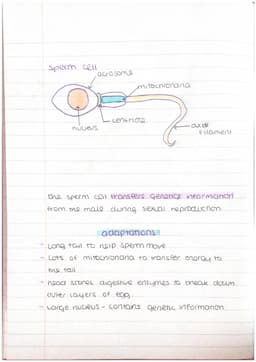 sperm cell
acrosome
mitochondria
centriole
nucleus
outer
filament
the sperm cell transfers genetic information
from the male during sexual reproduction.
adaptations
- Long tail to help sperm move.
- Lots of mitochondria to transfer energy to
the tail
- head stores digestive enzymes to break down
outer layers of egg.
- Large nucleus - contains genetic information.